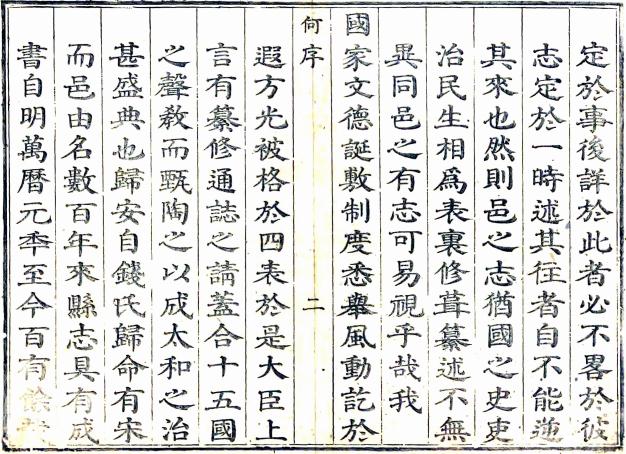 定於事後詳於此者必不畧於彼
志定於一時述其徃者自不能逆
其來也然則邑之志猶國之史吏
治民生相爲表裏修葺纂述不無
異同邑之有志可易視乎哉我
國家文德誕敷制度悉舉風動訖於
何序 二
遐方光被格於四表於是大臣上
言有纂修通誌之請蓋合十五國
之聲敎而甄陶之以成太和之治
甚盛典也歸安自錢氏歸命有宋
而邑由名數百年來縣志具有成
書自明萬曆元秊至今百有餘